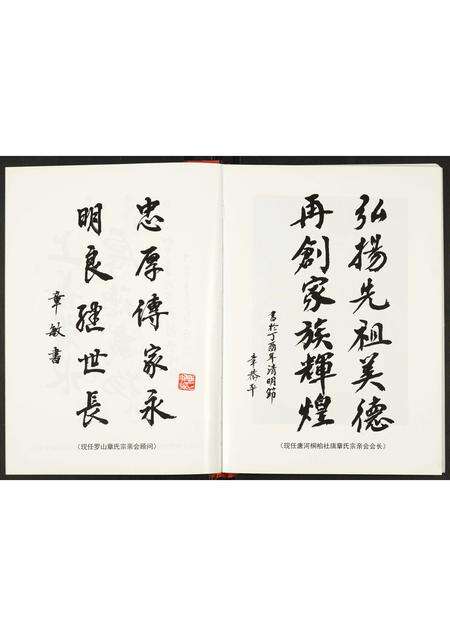 忠厚傳家永
明良继世長
章敏書
（现任罗山章氏宗亲会顾问）
弘揚先祖美德
再創家族輝煌
書於丁酉年清明節
章 平
（现任唐河桐柏社旗章氏宗亲会会长）